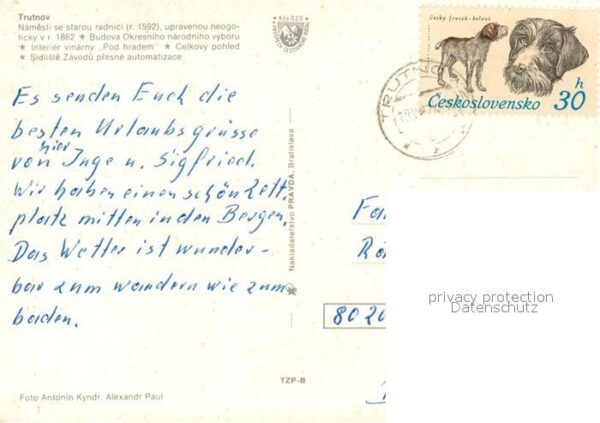 Trutnov
Náměstí se starou radnicí (r. 1592), upravenou neogo-
ticky v r. 1862 ★ Budova Okresního národního výboru
★ Interiér vinárny „Pod hradem" ★ Celkový pohled
★ Sídliště Závodů přesné automatizace
Kčs 020
Es senden Euch die
besten Urlaubsgrüsse
von hier Inge u. Sigfried.
Wir haben einen schön Zelt-
platz mitten in den Bergen.
Das Wetter ist wunder-
bar zum wandern wie zum
baden.
Foto Antonín Kyndr, Alexandr Paul
TZP-B
Nakladatelstvo PRAVDA, Bratislava
Český fousek-hlava
Československo 30 h
TRUTN
Fa
802
privacy protection
Datenschutz